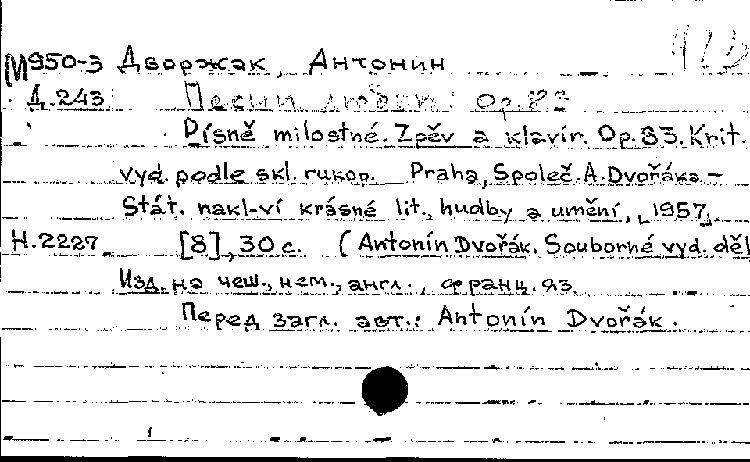 М950-3 Дворжак, Антонин
Д.243 Песни любви. Op.83
Písně milostné. Zpěv a klavír. Op.83. Krit.
vyd. podle skl. rukop. Praha, Společ. A. Dvořáka –
Stát. nakl-ví krásné lit., hudby a umění, 1957.
Н.2227 [8], 30 с. (Antonín Dvořák. Souborné vyd. děl
Изд. на чеш., нем., англ., франц. яз.
Перед загл. авт.: Antonín Dvořák.